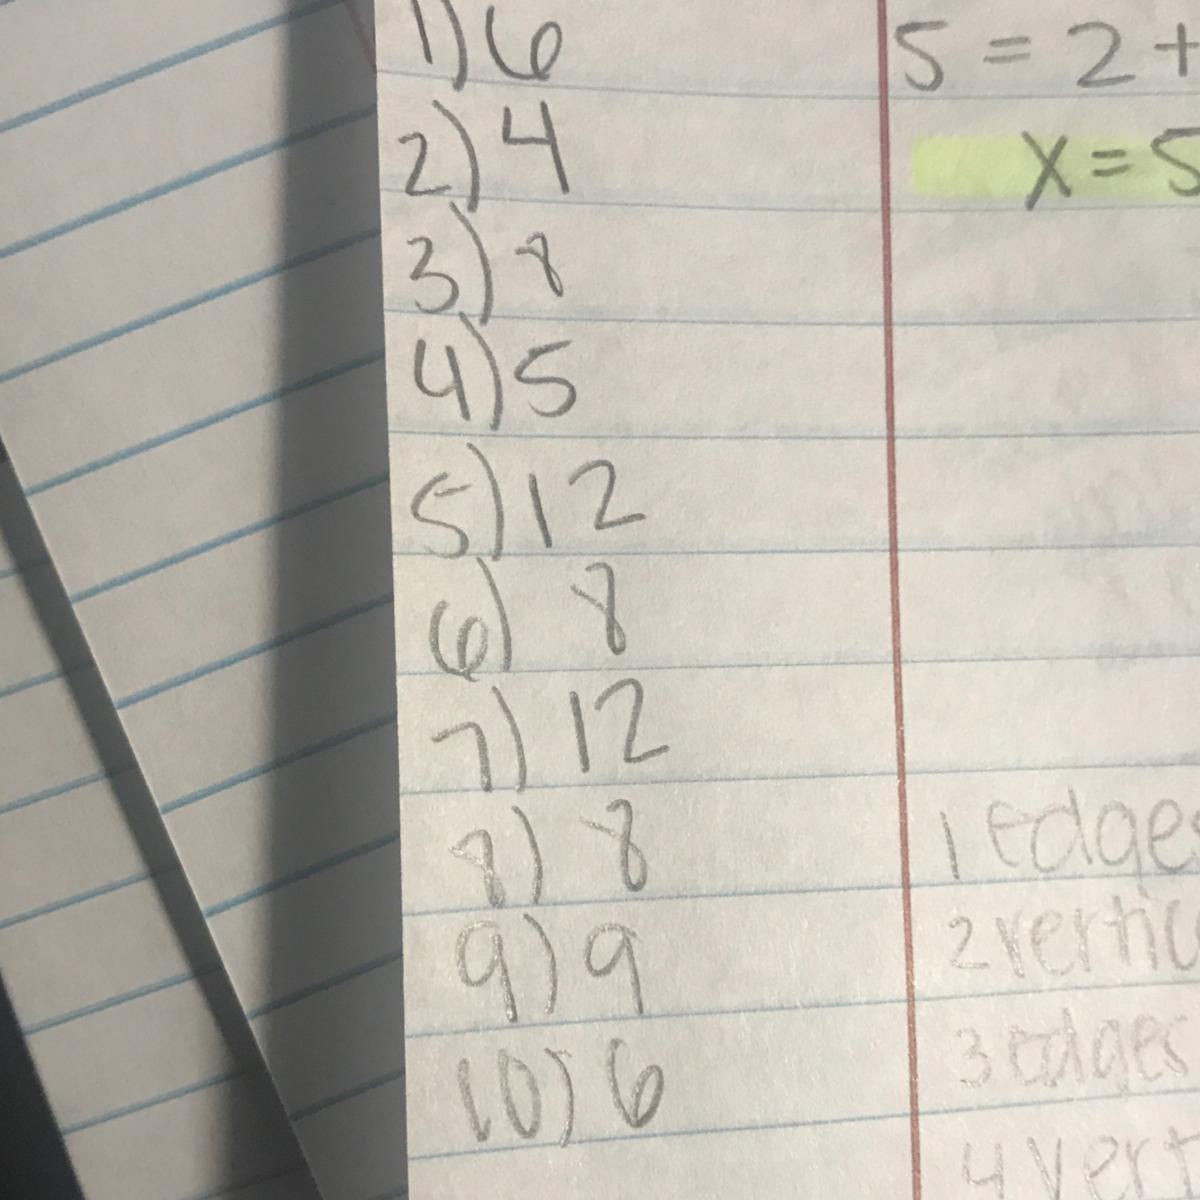 1) 6
2) 4
3) 8
4) 5
5) 12
6) 8
7) 12
8) 8
9) 9
10) 6
5 = 2 +
x = 5
1 edges
2 vertic
3 edges
4 vert